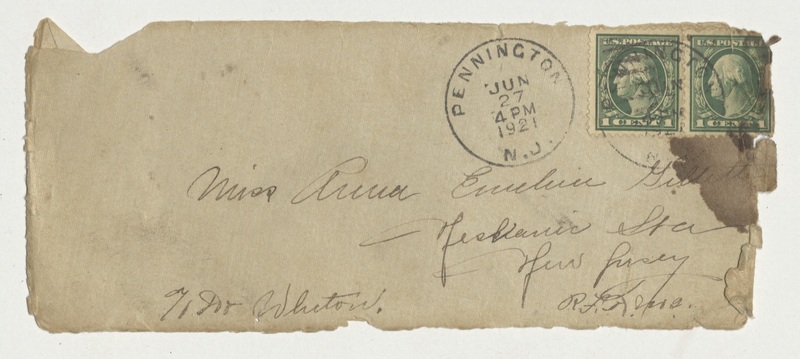 PENNINGTON
JUN
27
4 PM
1921
N.J.
U.S. POSTAGE
1 CENT 1
U.S. POSTAGE
1 CENT 1
Miss Anna Emeline
Neshanic Sta
New Jersey
R.F.D.